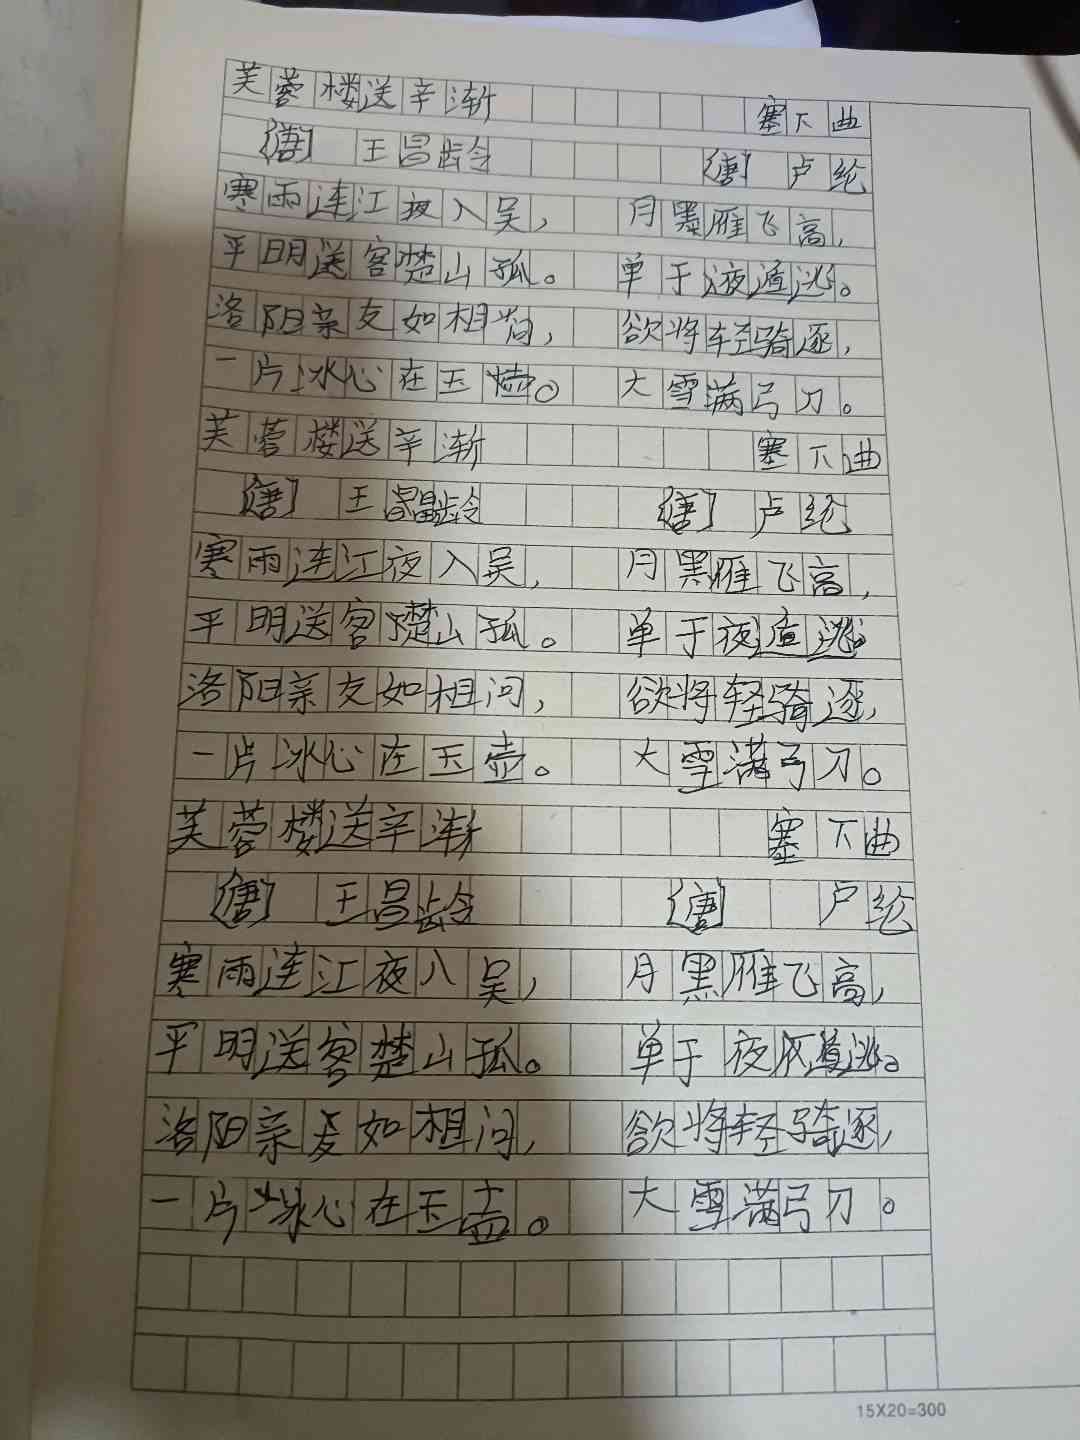 芙蓉楼送辛渐 塞下曲
〔唐〕 王昌龄 〔唐〕 卢纶
寒雨连江夜入吴， 月黑雁飞高，
平明送客楚山孤。 单于夜遁逃。
洛阳亲友如相问， 欲将轻骑逐，
一片冰心在玉壶。 大雪满弓刀。
芙蓉楼送辛渐 塞下曲
〔唐〕 王昌龄 〔唐〕 卢纶
寒雨连江夜入吴， 月黑雁飞高，
平明送客楚山孤。 单于夜遁逃。
洛阳亲友如相问， 欲将轻骑逐，
一片冰心在玉壶。 大雪满弓刀。
芙蓉楼送辛渐 塞下曲
〔唐〕 王昌龄 〔唐〕 卢纶
寒雨连江夜入吴， 月黑雁飞高，
平明送客楚山孤。 单于夜遁逃。
洛阳亲友如相问， 欲将轻骑逐，
一片冰心在玉壶。 大雪满弓刀。
15X20=300